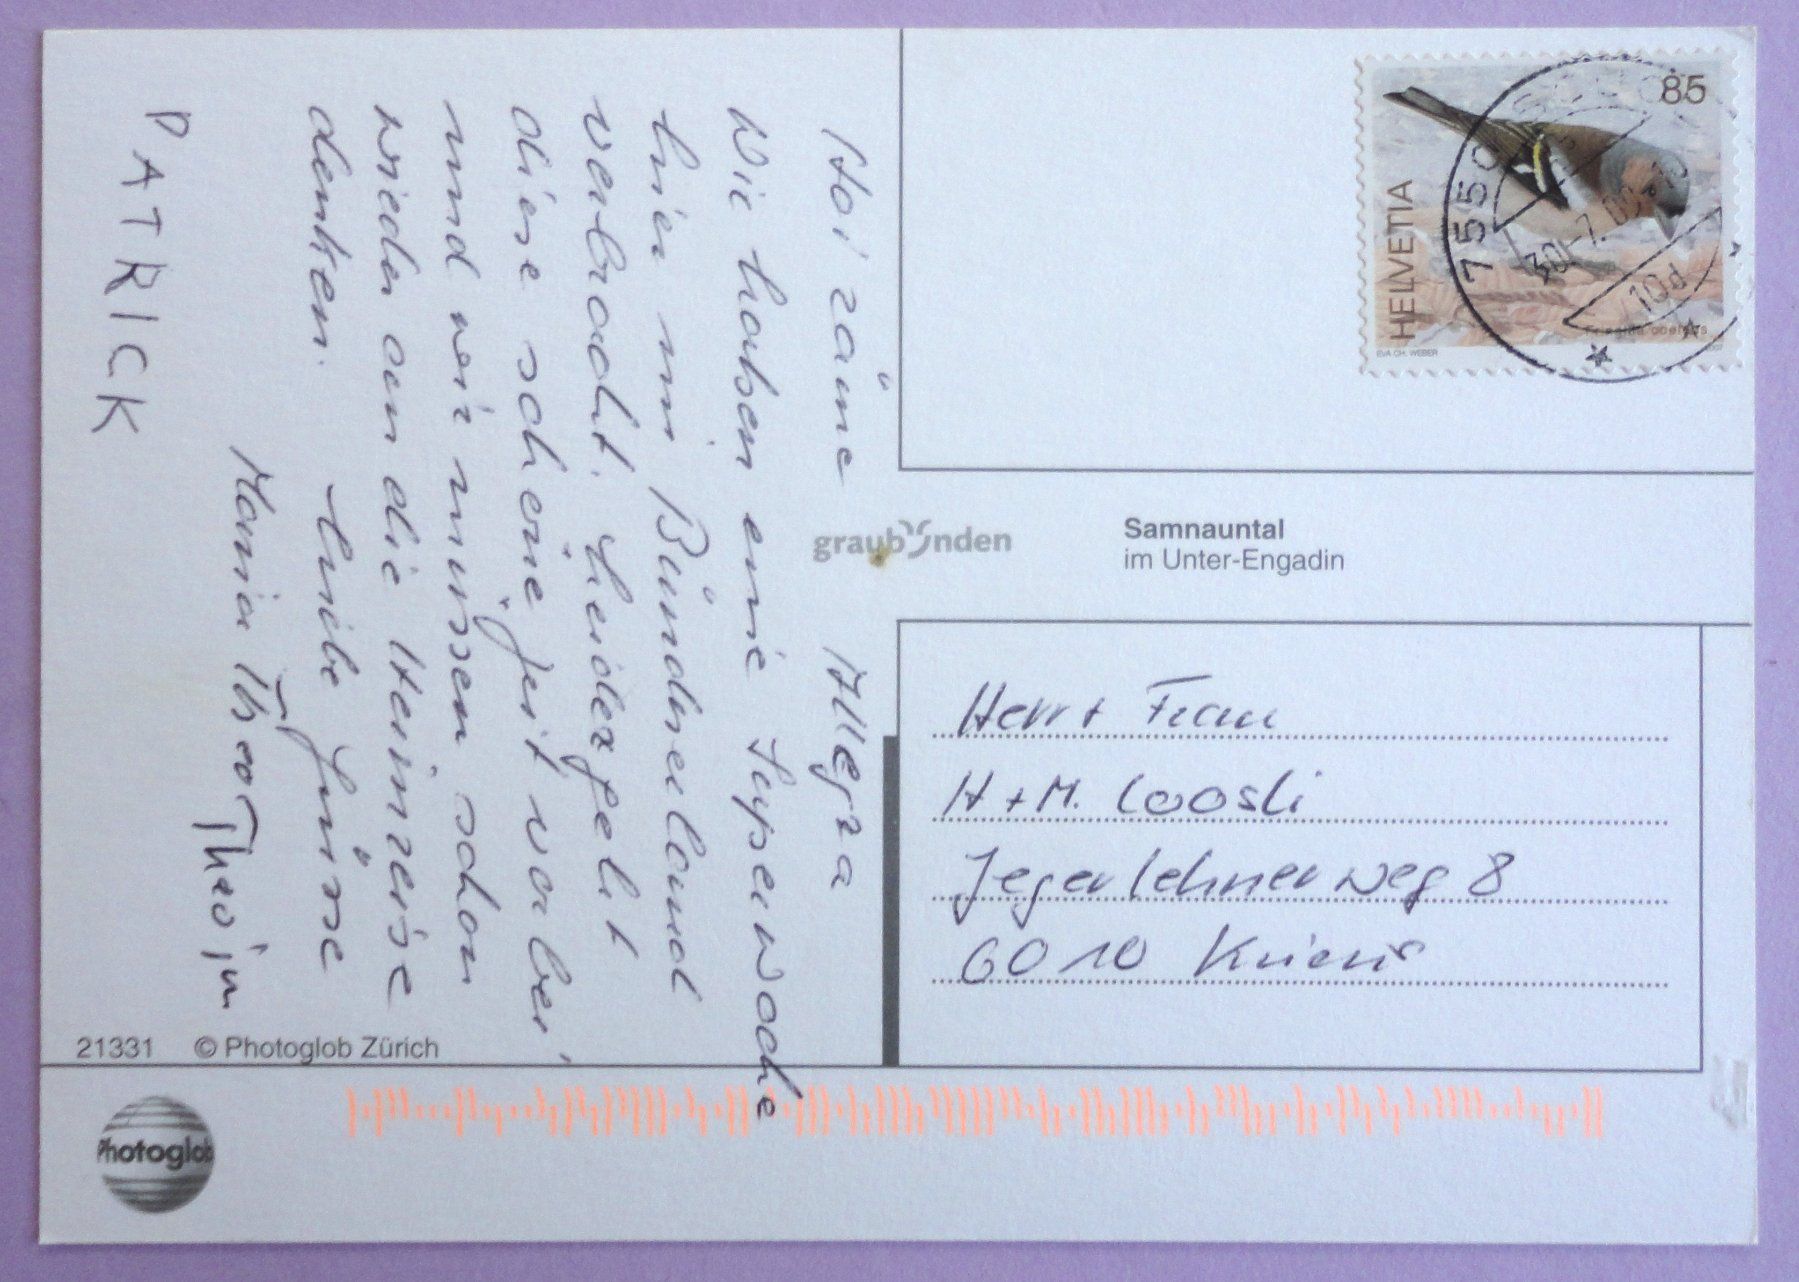 Hoi zäme Allegra
Wir haben eine Superwoche
hier im Bündnerland
verbracht. Leider geht
diese schöne Zeit vorbei
und wir müssen schon
wieder an die Heimreise
denken. Liebe Grüsse
Maria Theo
PATRICK
HELVETIA
85
EVA CH. WEBER
7550
10d
graubünden
Samnauntal
im Unter-Engadin
Herr + Frau
H + M. Loosli
Jegerlehnerweg 8
6010 Kriens
21331 © Photoglob Zürich
Photoglob